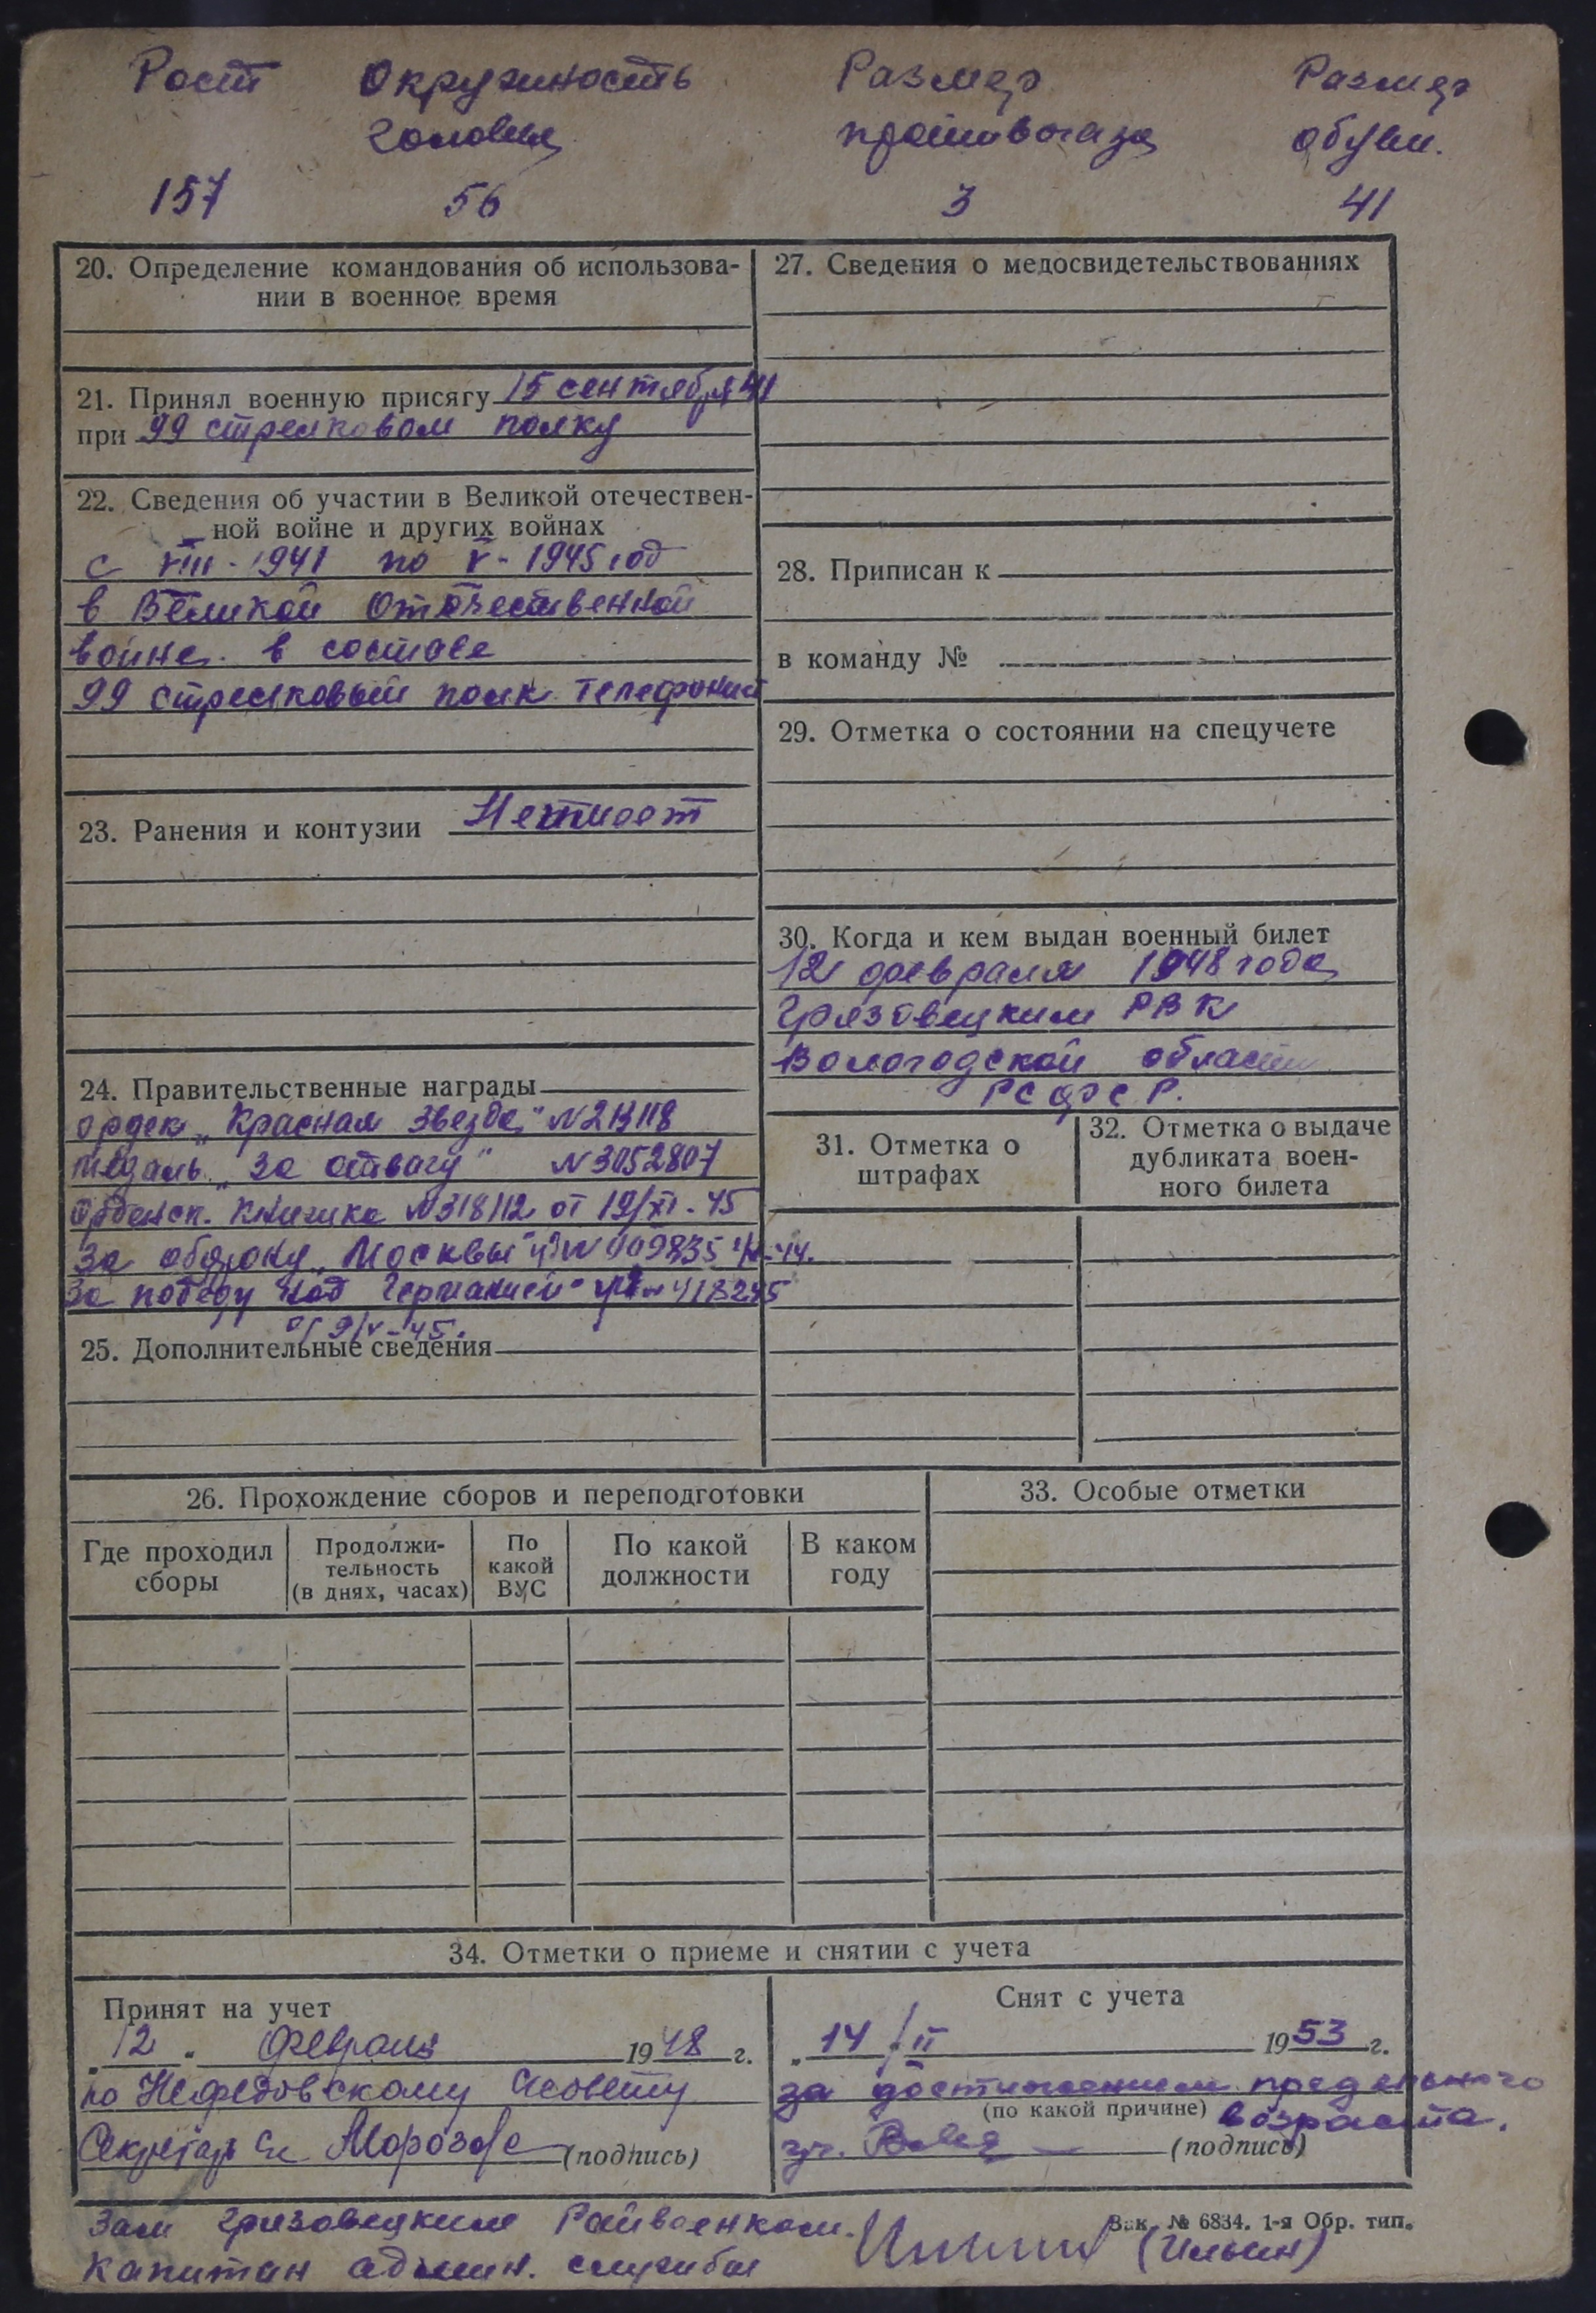 Рост Окружность Размер Размер
головы противогаза обуви.
157 56 3 41
20. Определение командования об использова-
нии в военное время
21. Принял военную присягу 15 сентября 41
при 99 стрелковом полку
22. Сведения об участии в Великой отечествен-
ной войне и других войнах
с VIII - 1941 по V - 1945 год
в Великой Отечественной
войне в составе
99 стрелковый полк телефонист
23. Ранения и контузии Не имеет
24. Правительственные награды
орден „Красная Звезда" N 213118
медаль „За отвагу" N 3052807
орденск. книжка N 318112 от 19/XI - 45
За оборону „Москвы" N 009835 -44.
За победу над Германией" N 418295
от 9/V - 45.
25. Дополнительные сведения
27. Сведения о медосвидетельствованиях
28. Приписан к
в команду №
29. Отметка о состоянии на спецучете
30. Когда и кем выдан военный билет
12 февраля 1948 года
Грязовецким РВК
Вологодской области
РСФСР.
31. Отметка о
штрафах
32. Отметка о выдаче
дубликата воен-
ного билета
26. Прохождение сборов и переподготовки
Где проходил
сборы
Продолжи-
тельность
(в днях, часах)
По
какой
ВУС
По какой
должности
В каком
году
33. Особые отметки
34. Отметки о приеме и снятии с учета
Принят на учет
„12" Февраля 1948 г.
по Нефедовскому с/совету
Секретарь с/с Морозова (подпись)
Снят с учета
„14/II 1953 г.
за достижением предельного
(по какой причине) возраста.
(подпись)
Зам Грязовецким Райвоенком.
капитан админ. службы (Ильин)
Зак. № 6834. 1-я Обр. тип.